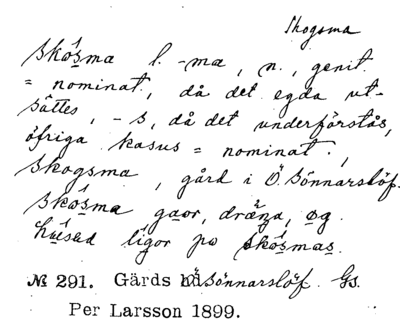 Skogsma
skó̱sma l. -ma, n., genit.
= nominat., då det egda ut-
sättes, -s, då det underförstås,
öfriga kasus = nominat.;
Skogsma, gård i Ö. Sönnarslöf.
skó̱sma gaor, dräŋa, og.
húsed lígor po skó̱smas.
№ 291. Gärds hd Ö Sönnarslöf. Gs.
Per Larsson 1899.